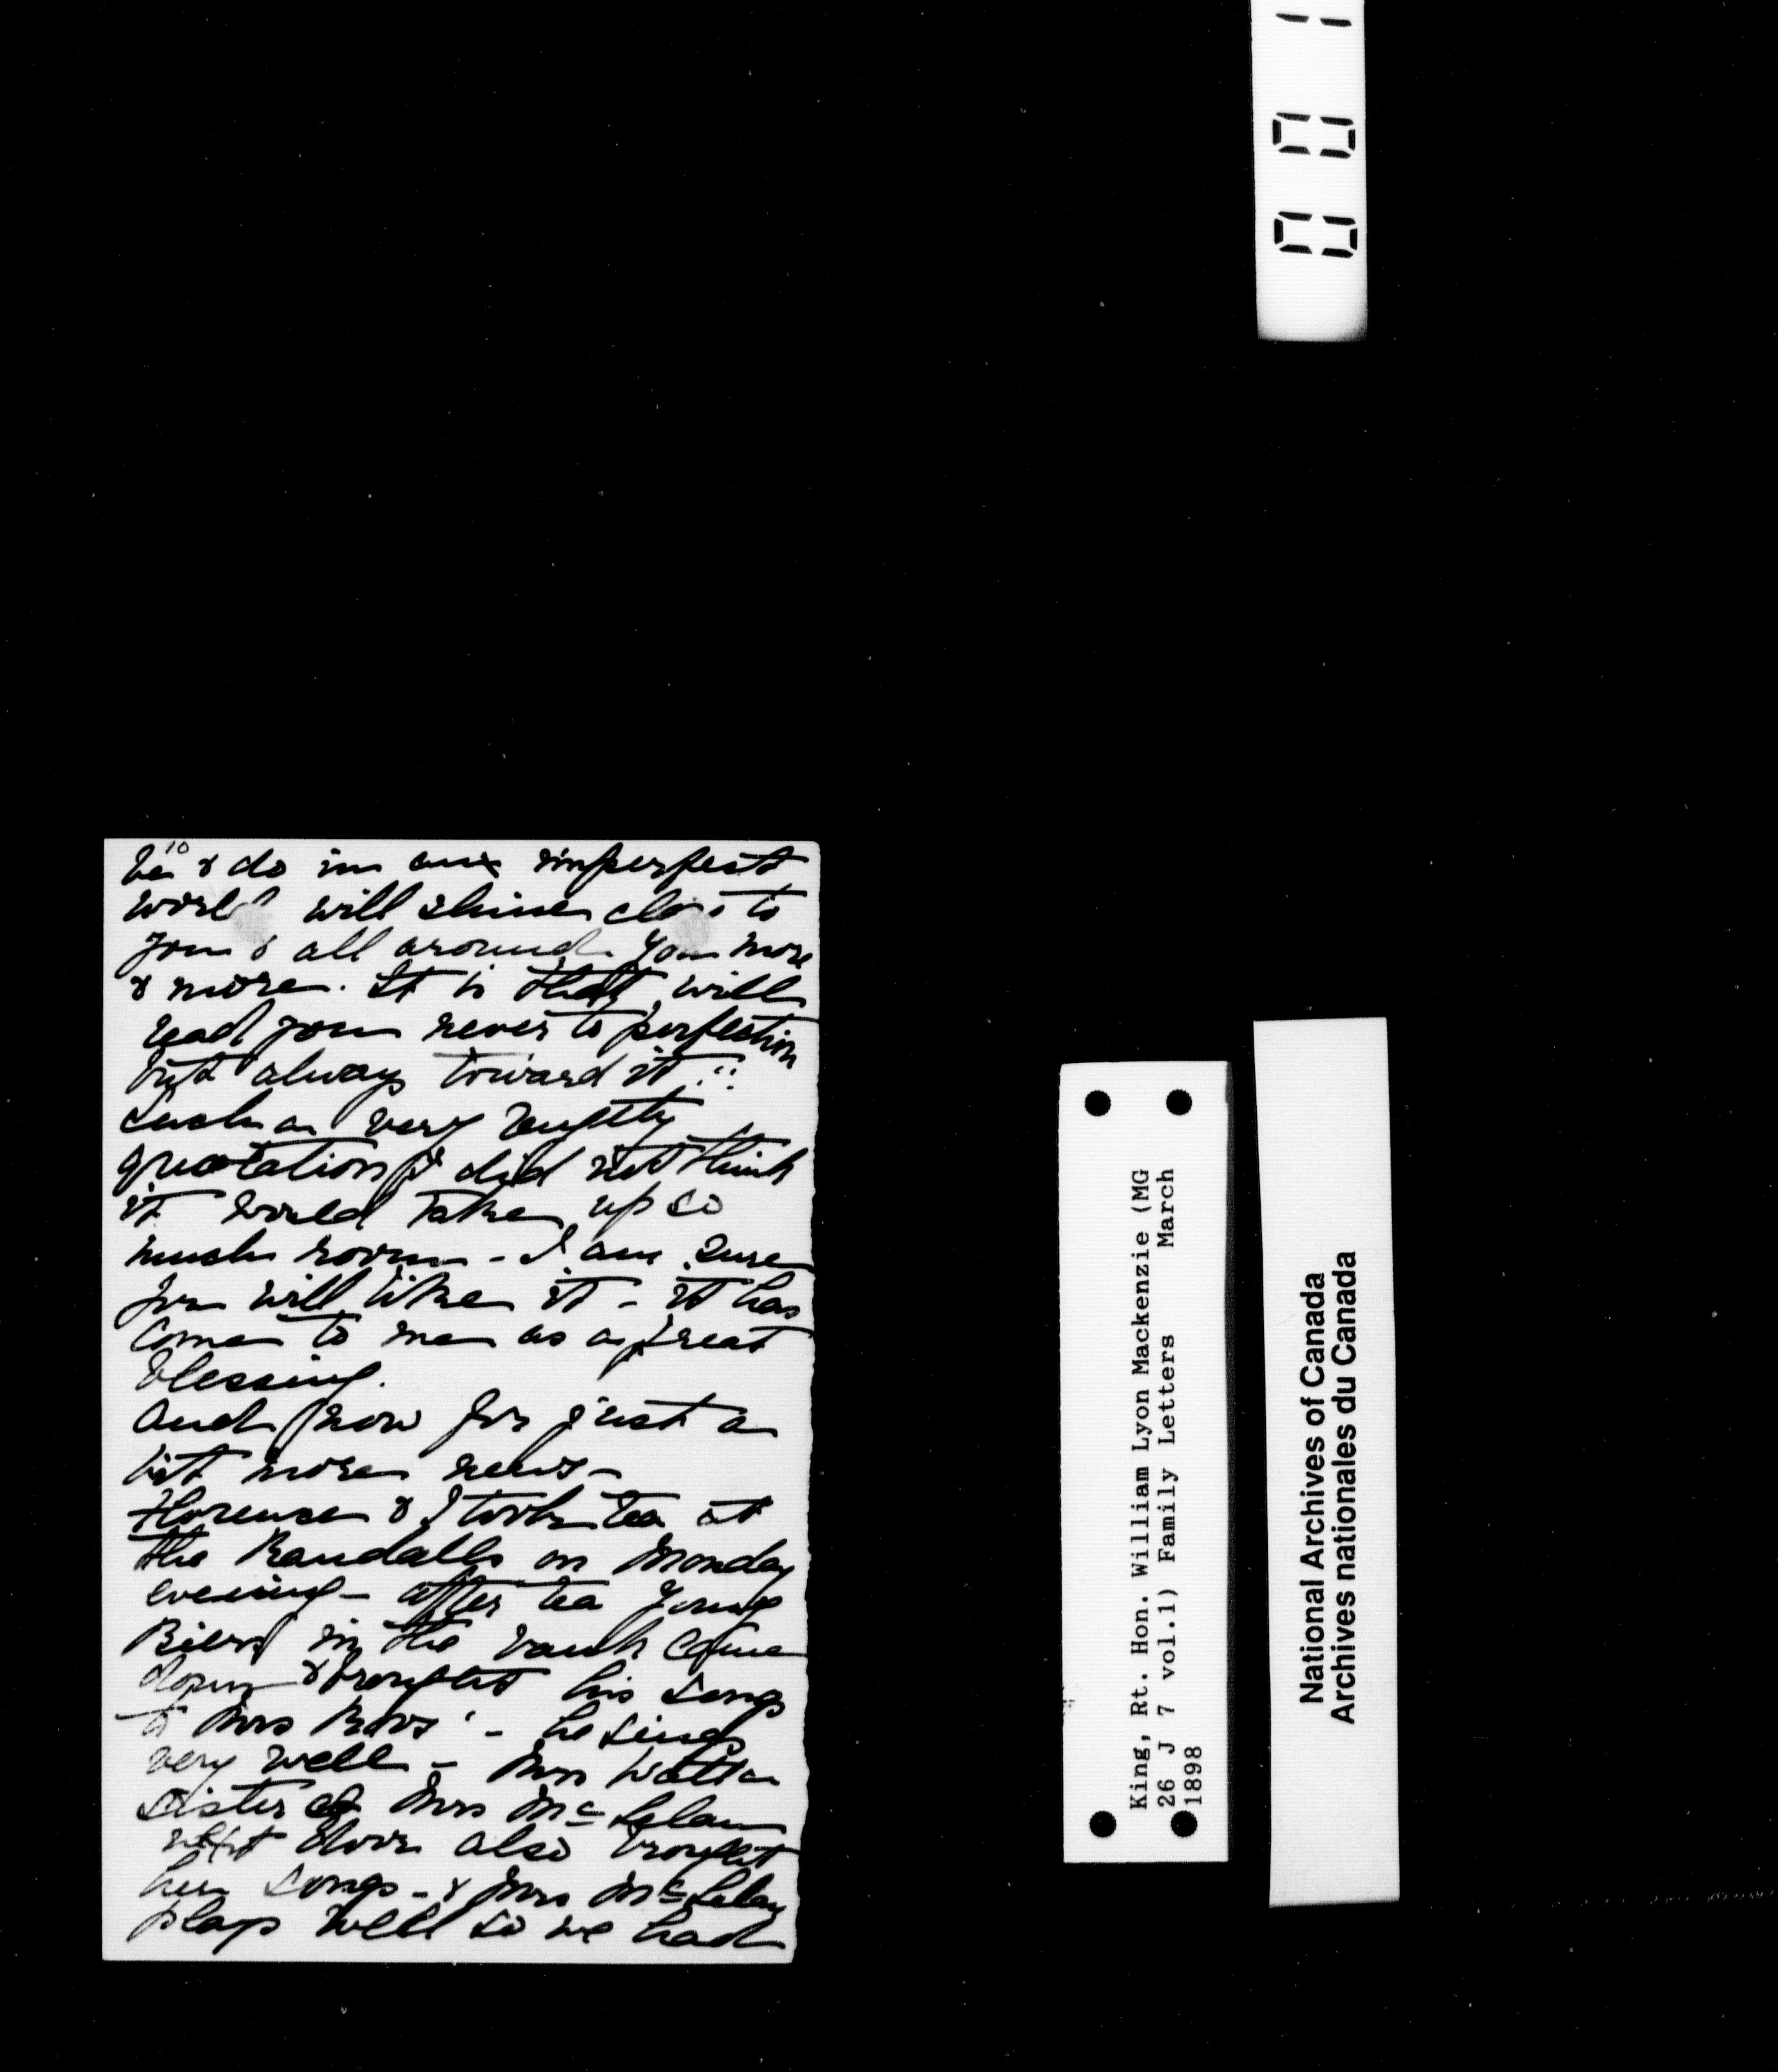 10
be & do in our imperfect
world will shine close to
you & all around you more
& more. It is that will
lead you never to perfection
but always toward it."
Such a very lengthy
quotation I did not think
it would take up so
much room - I am sure
you will like it - it has
come to me as a great
blessing.
And now for just a
bit more news -
Florence & I took tea at
the Randalls on Monday
evening - after tea young
in the bank came
down & brought his songs
to Mrs - he sings
very well - Mrs
sister of Mrs Mc Lelan
next door also brought
her songs - & Mrs Mc Lelan
plays well so we had
King, Rt. Hon. William Lyon Mackenzie (MG
26 J 7 vol.1) Family Letters March
1898
National Archives of Canada
Archives nationales du Canada
001